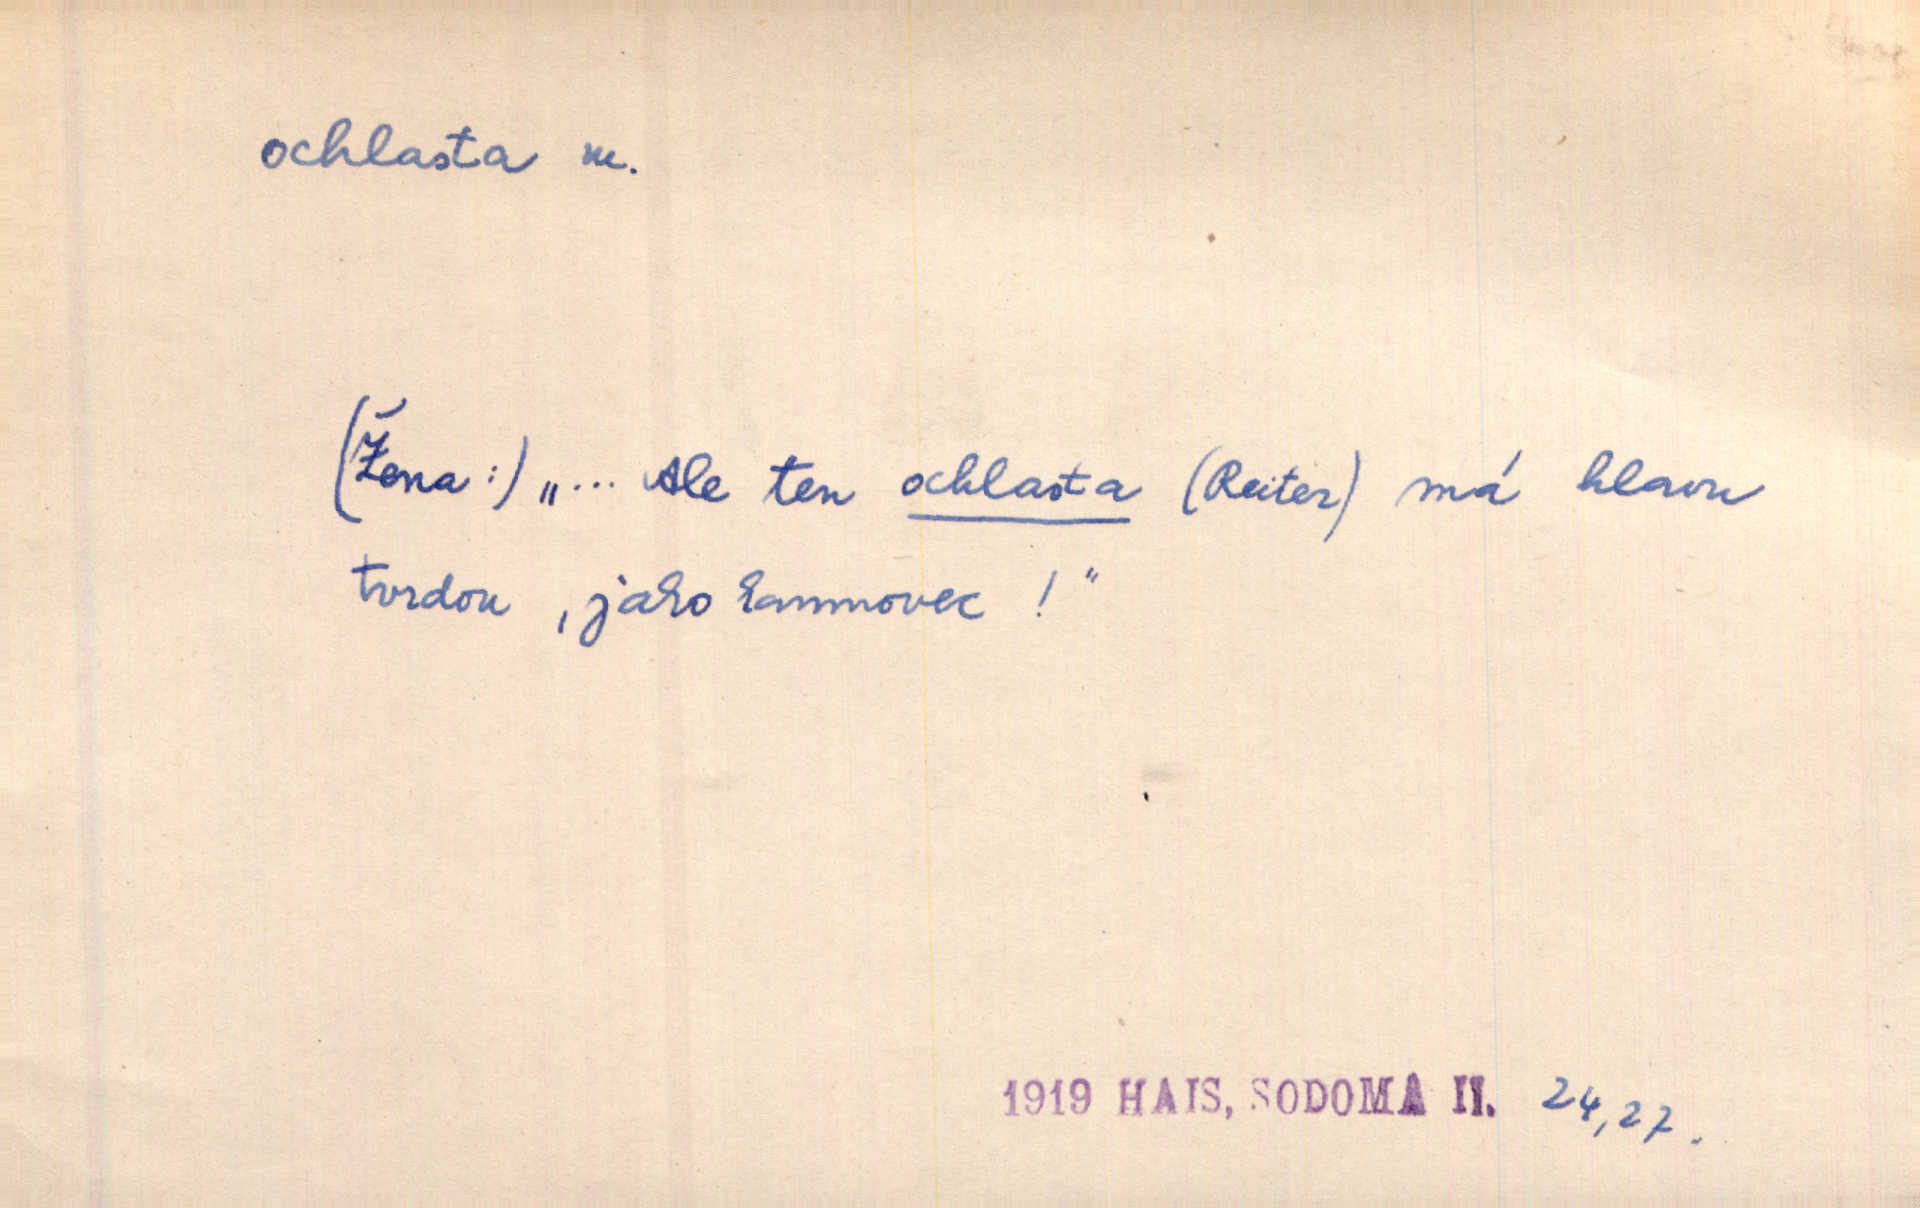 ochlasta m.
(Žena:) „... Ale ten ochlasta (Reiter) má hlavu
tvrdou, jako kamnovec!“
1919 HAIS, SODOMA II. 24,27.